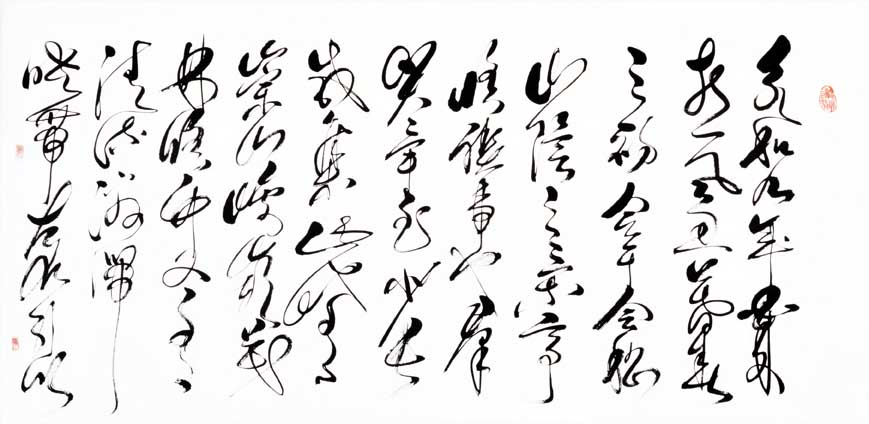 永和九年歲
在癸丑暮春
之初會于會稽
山陰之蘭亭
修禊事也群
賢畢至少長
咸集此地有
崇山峻領茂
林修竹又有
清流激湍
映帶左右引以